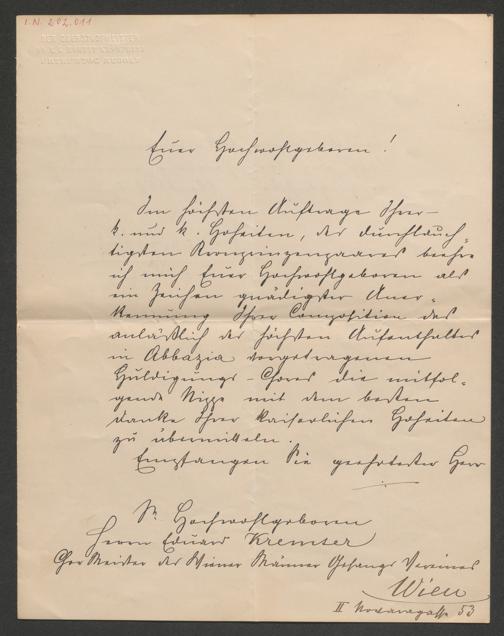 I.N. 202.011
DER OBERSTHOFMEISTER
Euer Hochwohlgeboren!
Im höchsten Auftrage Ihrer
k. und k. Hoheiten, des durchlauch-
tigsten Kronprinzenpaares beehre
ich mich Euer Hochwohlgeboren als
ein Zeichen gnädigster Aner-
kennung Ihrer Composition des
anläßlich des höchsten Aufenthaltes
in Abbazia vorgetragenen
Huldigungs-Chores die mitfol-
gende Nippe mit dem besten
Danke Ihrer kaiserlichen Hoheiten
zu übermitteln.
Empfangen Sie geehrtester Herr
Sr. Hochwohlgeboren
Herrn Eduard Kremser
Chor Meister des Wiener Männer Gesangs Vereines
Wien
II Novaragasse 53